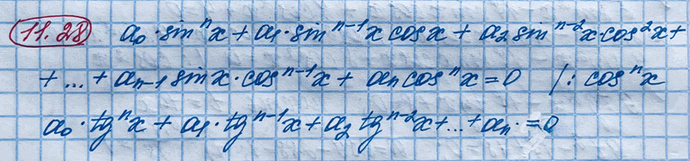 11.28 a₀·sinⁿx + a₁·sinⁿ⁻¹x cosx + a₂sinⁿ⁻²x·cos²x +
+ ... + aₙ₋₁sinx·cosⁿ⁻¹x + aₙcosⁿx = 0 /: cosⁿx
a₀·tgⁿx + a₁·tgⁿ⁻¹x + a₂tgⁿ⁻²x + ... + aₙ· = 0